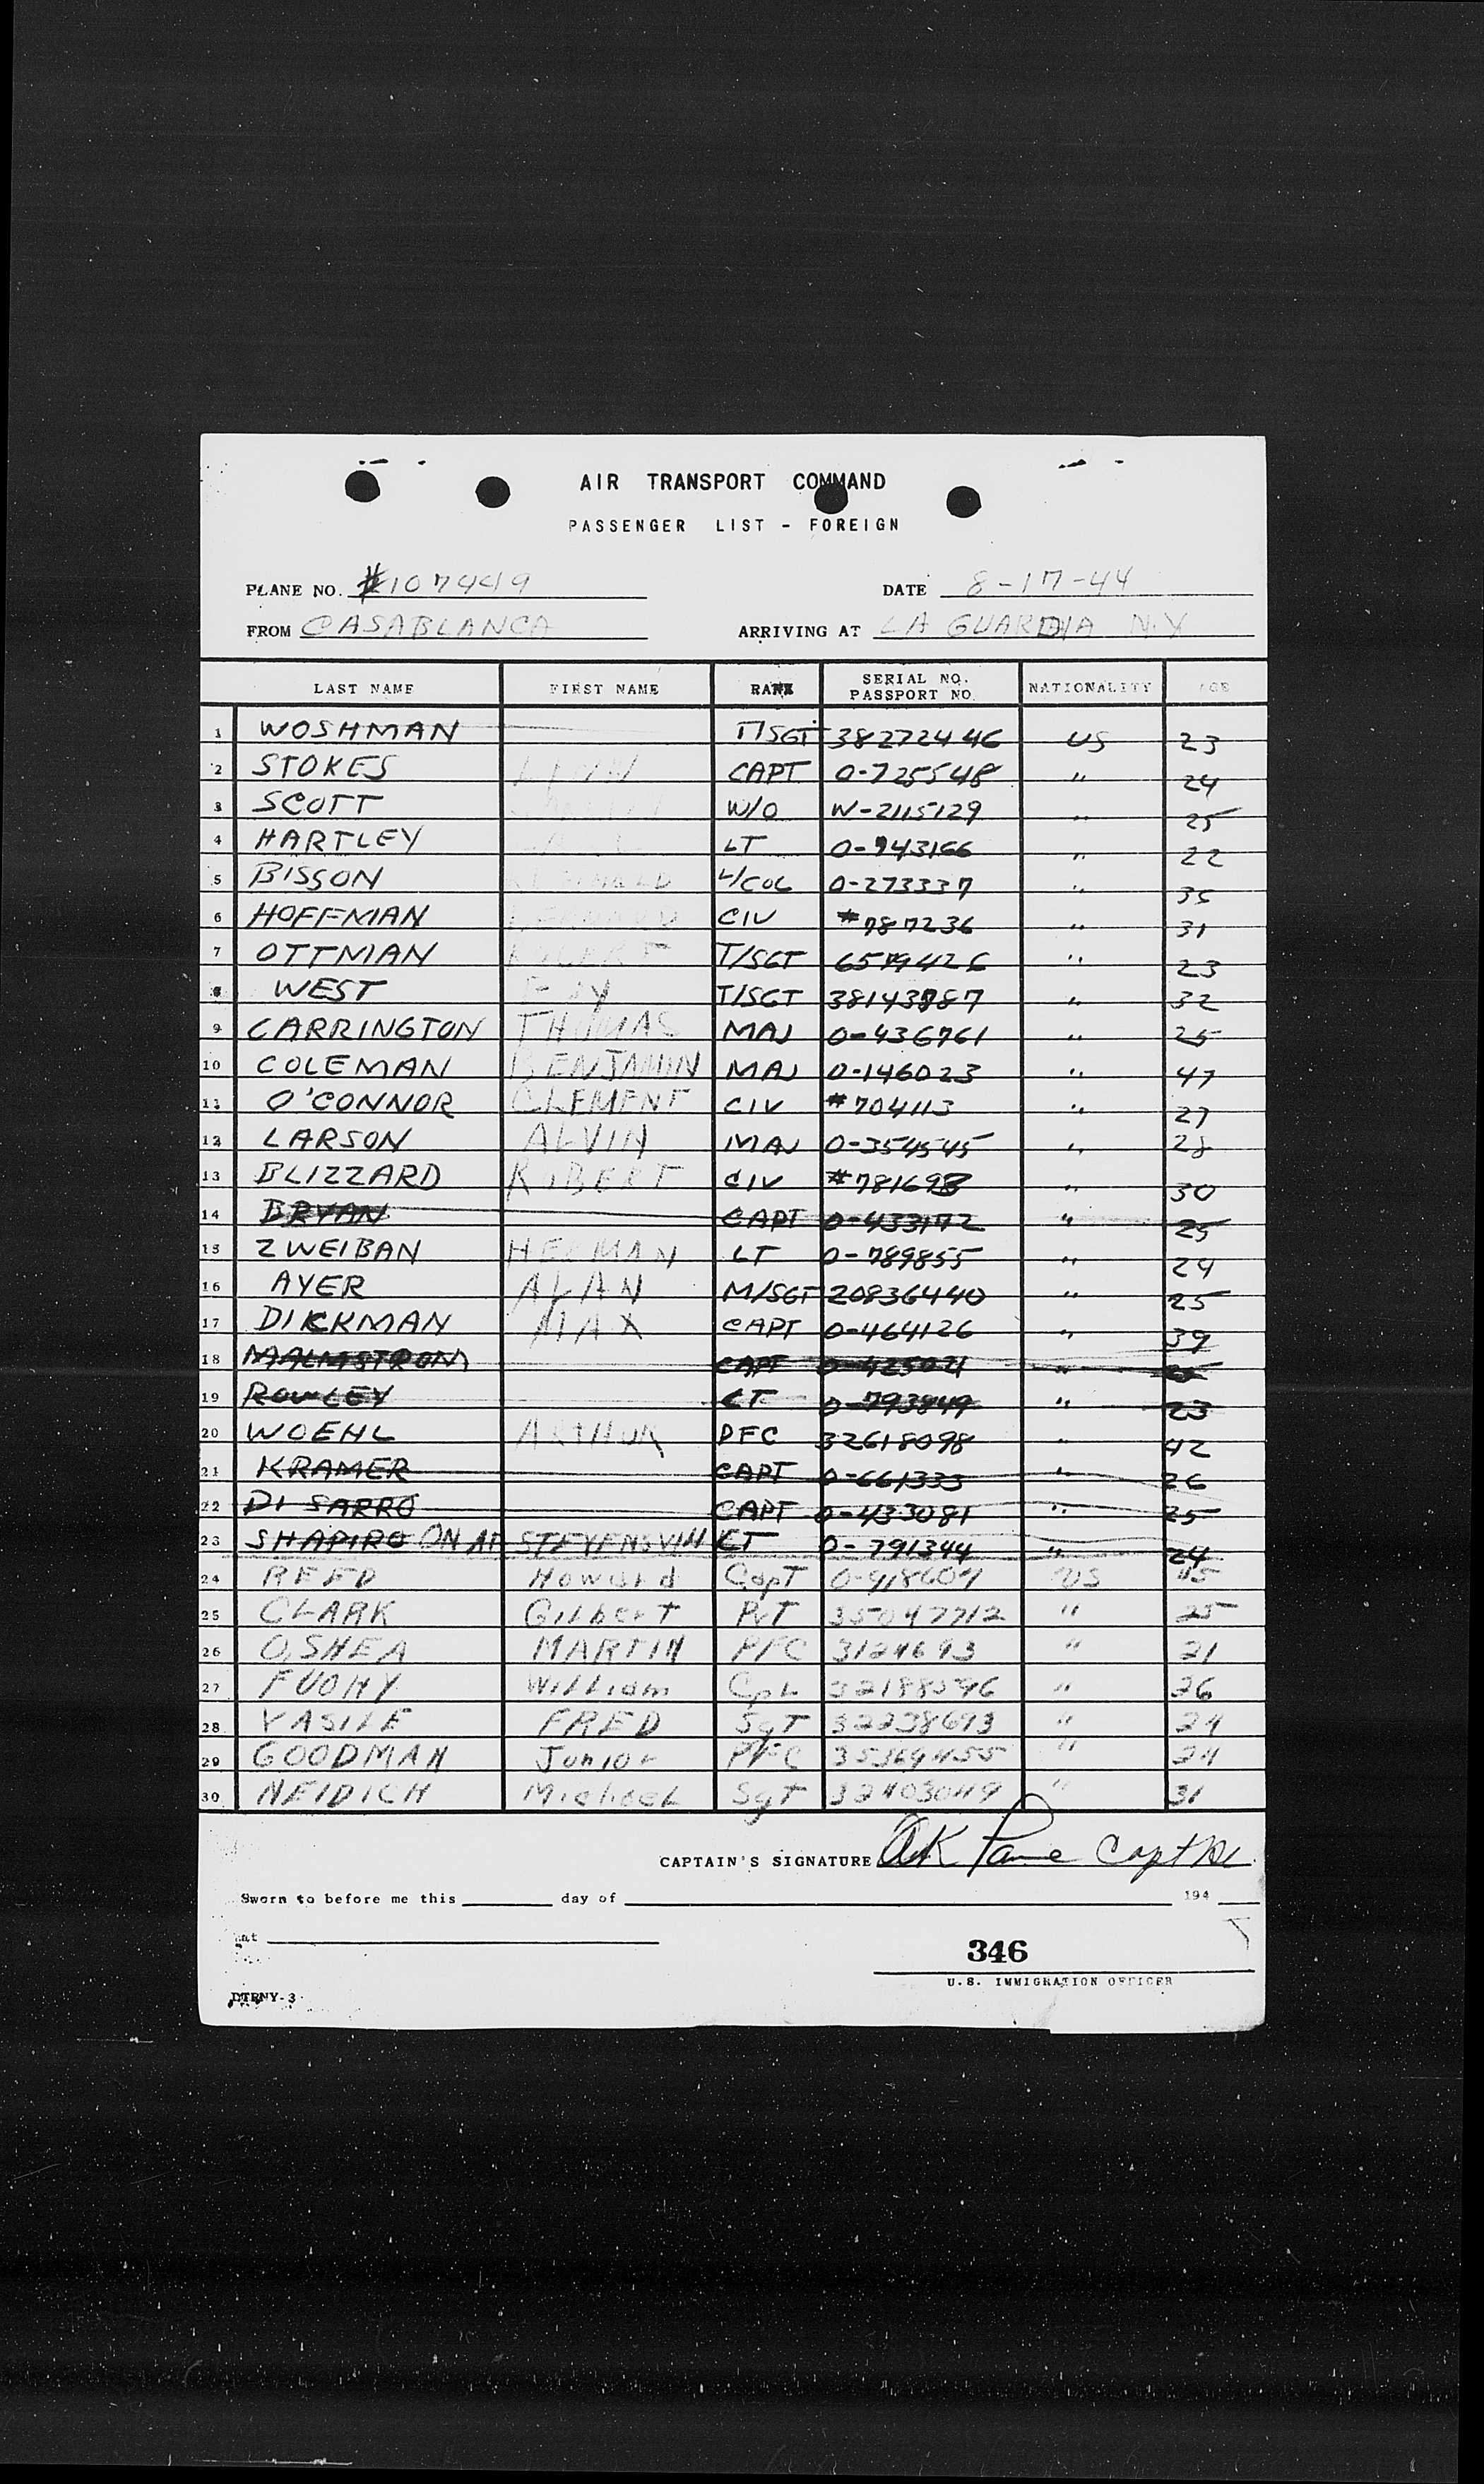 AIR TRANSPORT COMMAND
PASSENGER LIST - FOREIGN
PLANE NO. #107449 DATE 8-17-44
FROM CASABLANCA ARRIVING AT LA GUARDIA N.Y
LAST NAME FIRST NAME RANK SERIAL NO. PASSPORT NO. NATIONALITY AGE
1 WOSHMAN T/SGT 38272446 US 23
2 STOKES CAPT 0-725548 " 24
3 SCOTT W/O W-2115129 " 25
4 HARTLEY LT 0-743166 " 22
5 BISSON L/COL 0-273337 " 35
6 HOFFMAN BERNARD CIV #787236 " 31
7 OTTMAN ROBERT T/SGT 6579426 " 23
8 WEST T/SGT 38143787 " 32
9 CARRINGTON THOMAS MAJ 0-436761 " 25
10 COLEMAN BENJAMIN MAJ 0-146023 " 47
11 O'CONNOR CLEMENT CIV #704113 " 27
12 LARSON ALVIN MAJ 0-354545 " 28
13 BLIZZARD ROBERT CIV #781698 " 30
14 BRYAN CAPT 0-433172 " 25
15 ZWEIBAN HERMAN LT 0-789855 " 24
16 AYER ALAN M/SGT 20836440 " 25
17 DICKMAN MAX CAPT 0-464126 " 39
18 MALMSTROM CAPT "
19 ROWLEY LT 0-793849 " 23
20 WOEHL ARTHUR PFC 32618098 " 42
21 KRAMER CAPT 0-661333 " 26
22 DI SARRO CAPT 0-433081 " 25
23 SHAPIRO ON AT STEVENSVILL LT 0-791344 " 24
24 REED Howard Capt 0-918607 US 45
25 CLARK Gilbert PvT 35047712 " 25
26 O,SHEA MARTIN PFC 3124693 " 21
27 FUOHY William CpL 32188596 " 26
28 VASILE FRED SgT 32238693 " 24
29 GOODMAN Junior PFC 35369455 " 24
30 NEIDICH MichaeL SgT 32403049 " 31
CAPTAIN'S SIGNATURE AK Capt
Sworn to before me this day of 194
at
346
U.S. IMMIGRATION OFFICER
DTRNY-3